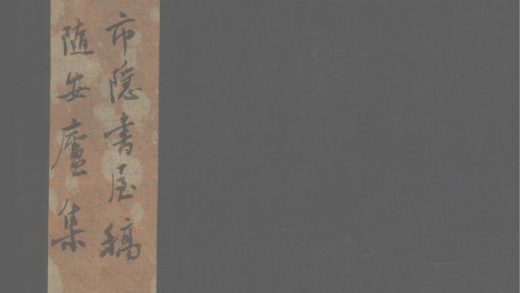 市隱書屋稿
隨安廬集